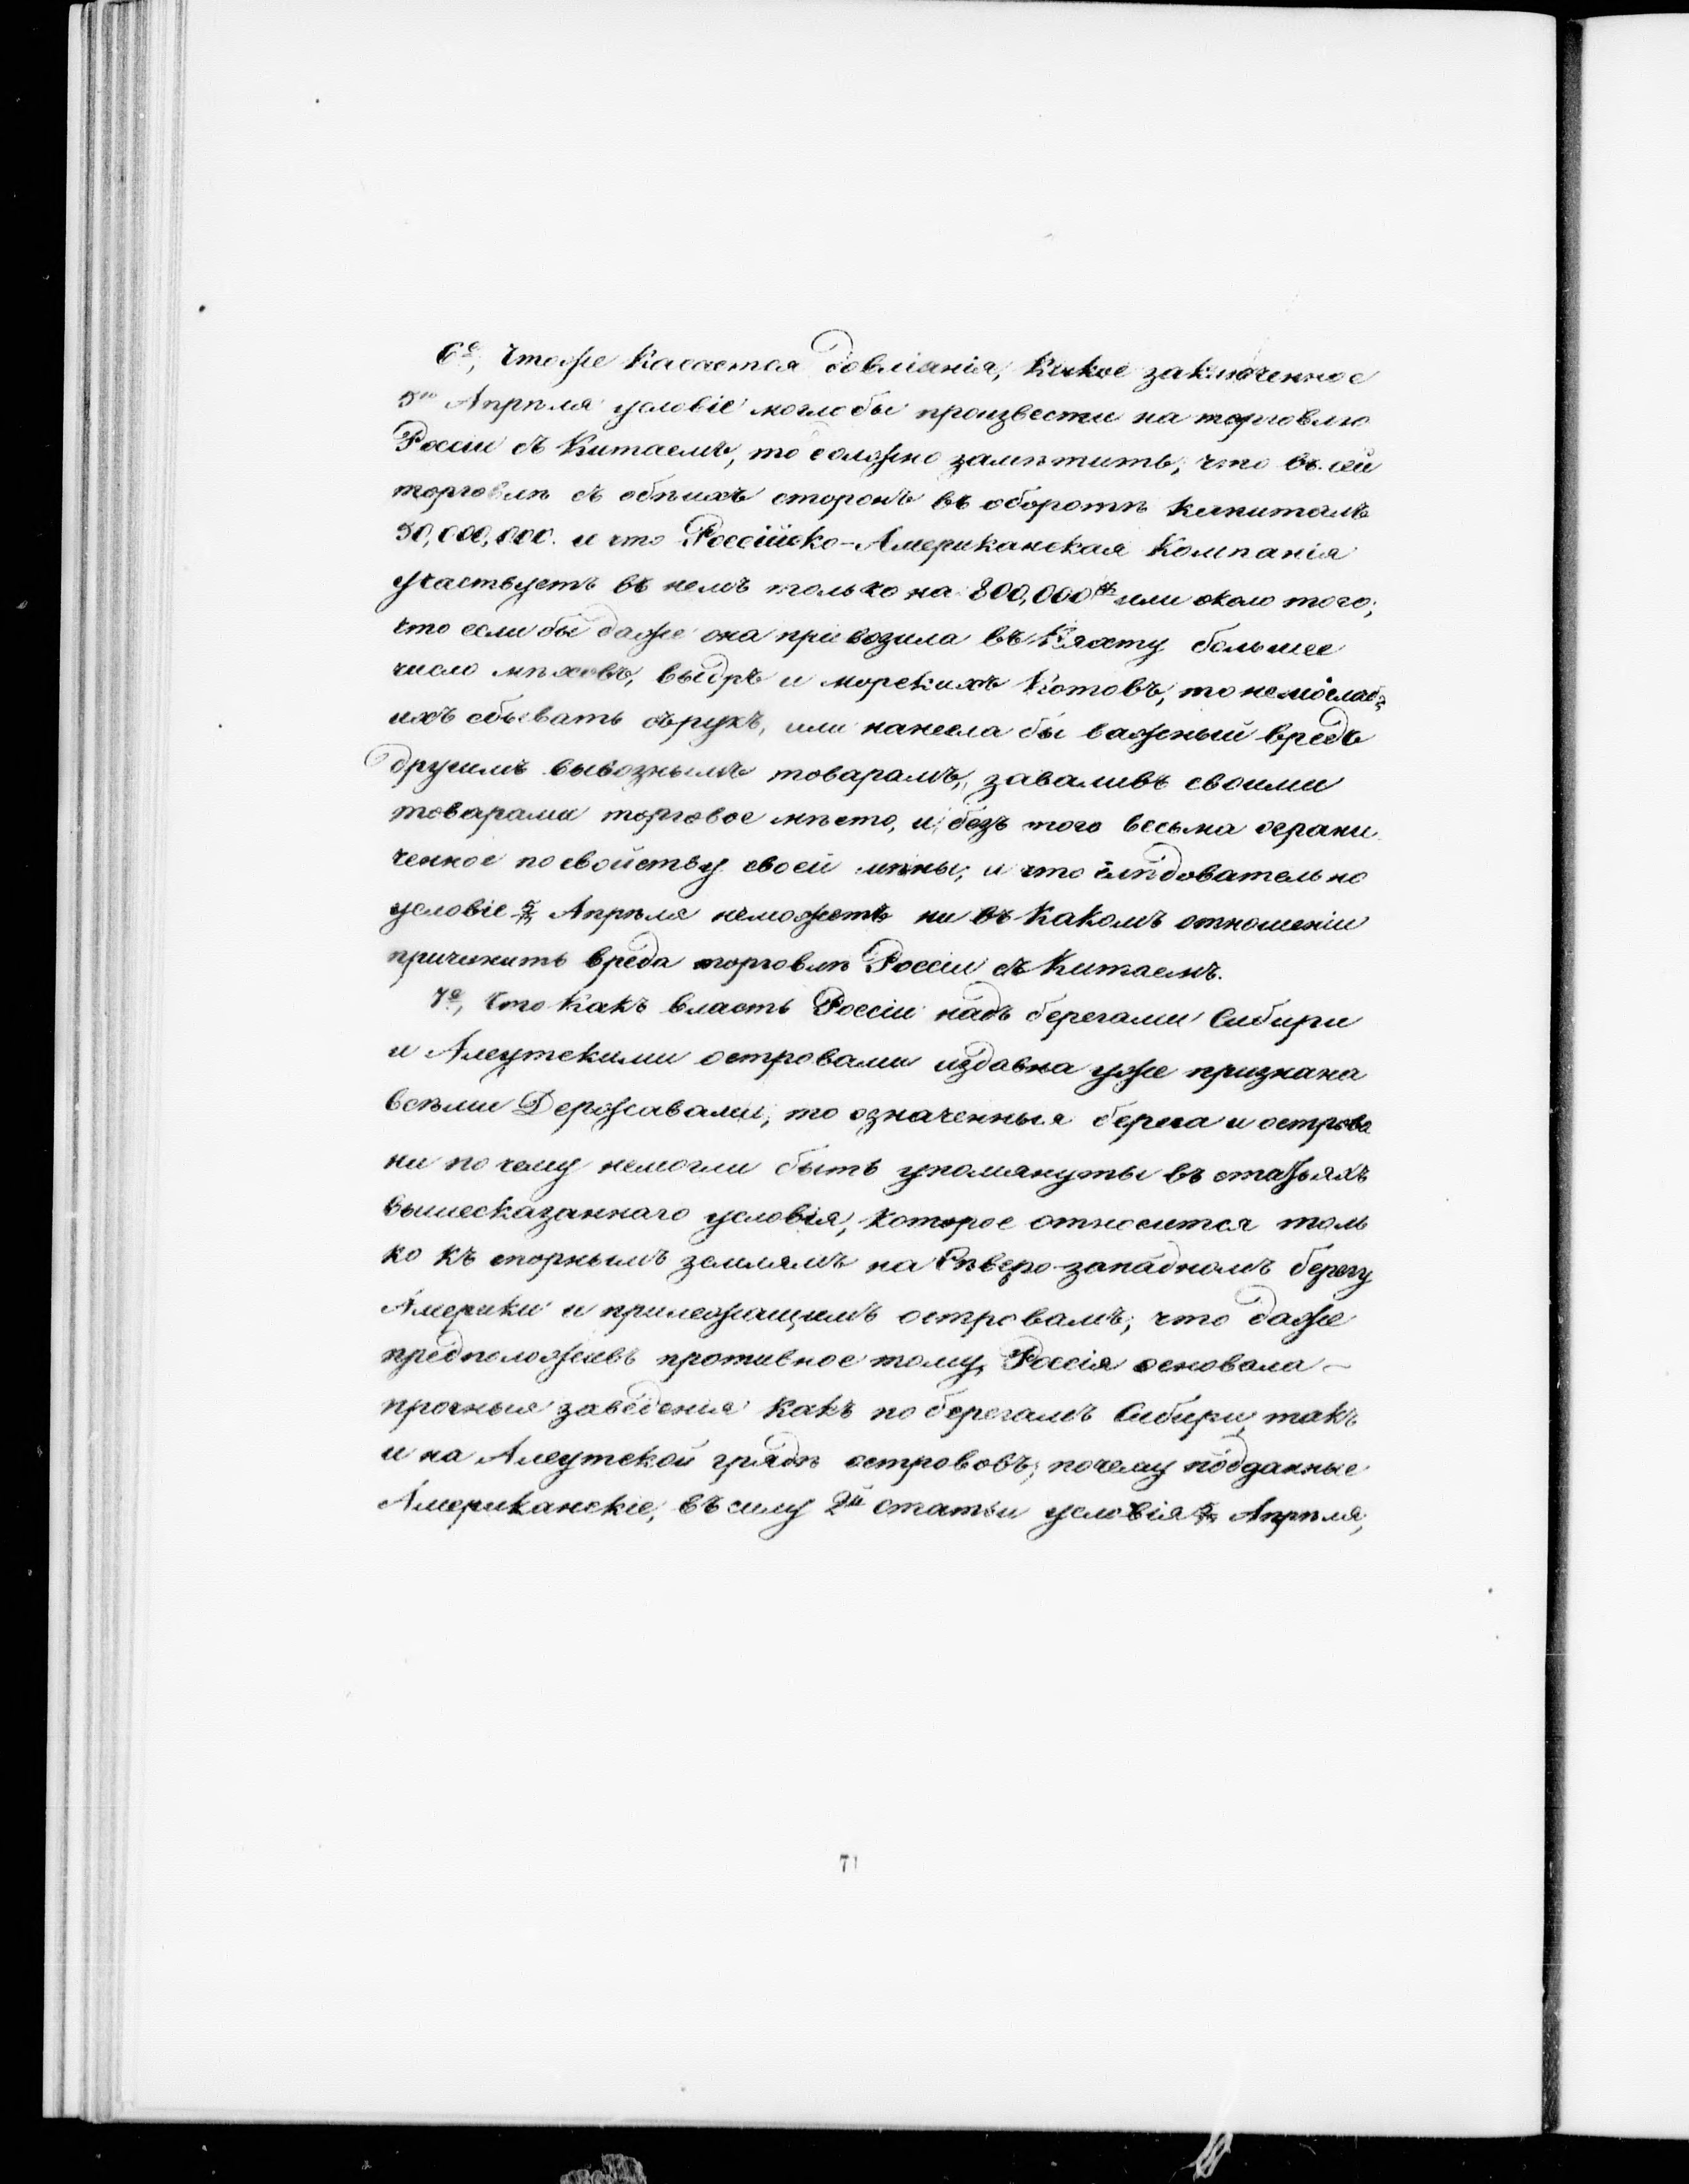 6е, Чтоже касается до вліянія, какое заключенное
5го Апрѣля условіе моглобы произвести на торговлю
Россіи съ Китаемъ, то должно замѣтить, что въ сей
торговлѣ съ обѣихъ сторонъ въ оборотѣ капиталъ
50,000,000. и что Россійско-Американская Компанія
участвуетъ въ немъ только на 800,000 или около того;
что если бы даже она привозила въ Кяхту большее
число мѣховъ, выдръ и морскихъ Котовъ, то немоглабъ
ихъ сбывать съ рукъ, или нанесла бы важный вредъ
другимъ вывознымъ товарамъ, заваливъ своими
товарами торговое мѣсто, и безъ того весьма ограни
ченное по свойству своей мѣны; и что слѣдовательно
условіе 5/17 Апрѣля неможетъ ни въ какомъ отношеніи
причинить вреда торговлѣ Россіи съ Китаемъ.
7е, Что какъ власть Россіи надъ берегами Сибири
и Алеутскими островами издавна уже признана
всѣми Державами, то означенныя берега и острова
ни по чему немогли быть упомянуты въ статьяхъ
вышесказаннаго условія, которое относится толь
ко къ спорнымъ землямъ на Сѣверо-западномъ берегу
Америки и прилежащимъ островамъ; что даже
предположивъ противное тому, Россія основала -
прочныя заведенія какъ по берегамъ Сибири, такъ
и на Алеутской грядѣ острововъ; почему подданные
Американскіе, въ силу 2й статьи условія 5/17 Апрѣля,
71